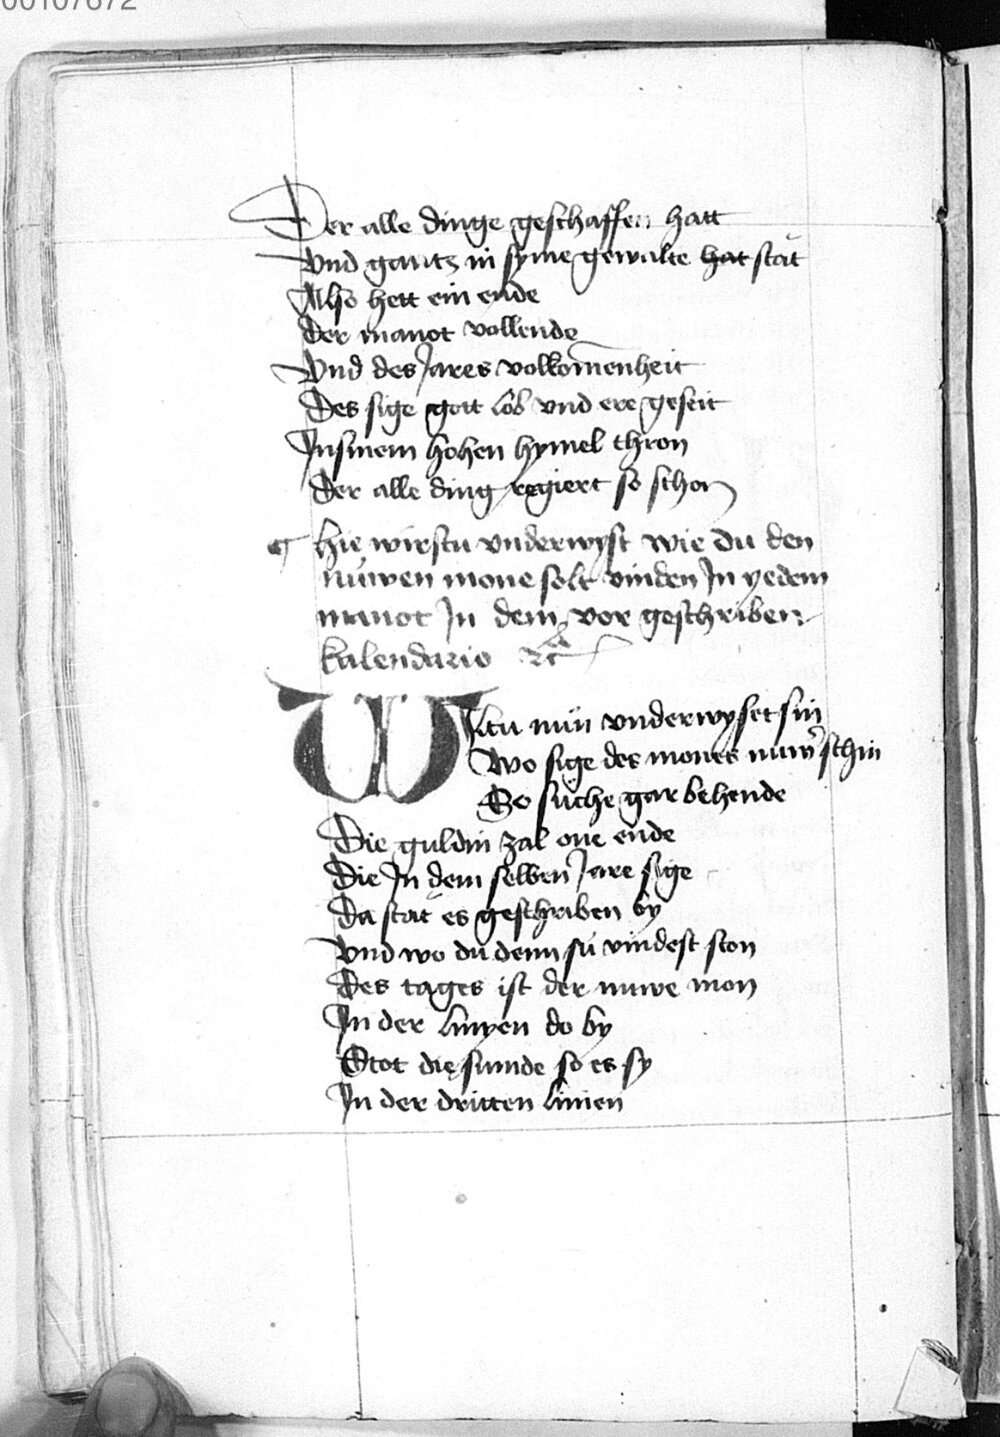 00107672
Der alle dinge geschaffen hatt
Vnd gantz in syme gewalte hat stät
Also hett ein ende
Der manot vollende
Vnd des Jares volkom̄enheit
Des sige gott lob vnd ere geseit
Jn sinem hohen hymel thron
Der alle ding regiert so schon
¶ hie wirstu vnderwyst wie du den
nüwen mone solt vinden Jn yedem
manot Jn dem vor geschriben
kalendario
Wiltu nün vnderwyset sin
Wo sige des mones nuwer schin
So süche gar behende
Die guldin zal one ende
Die Jn dem selben Jare sige
Da stät es geschriben by
Vnd wo du denn sü vindest ston
Des tages ist der nuwe mon
Jn der linyen do by
Stot die stunde so es sy
Jn der dritten linien